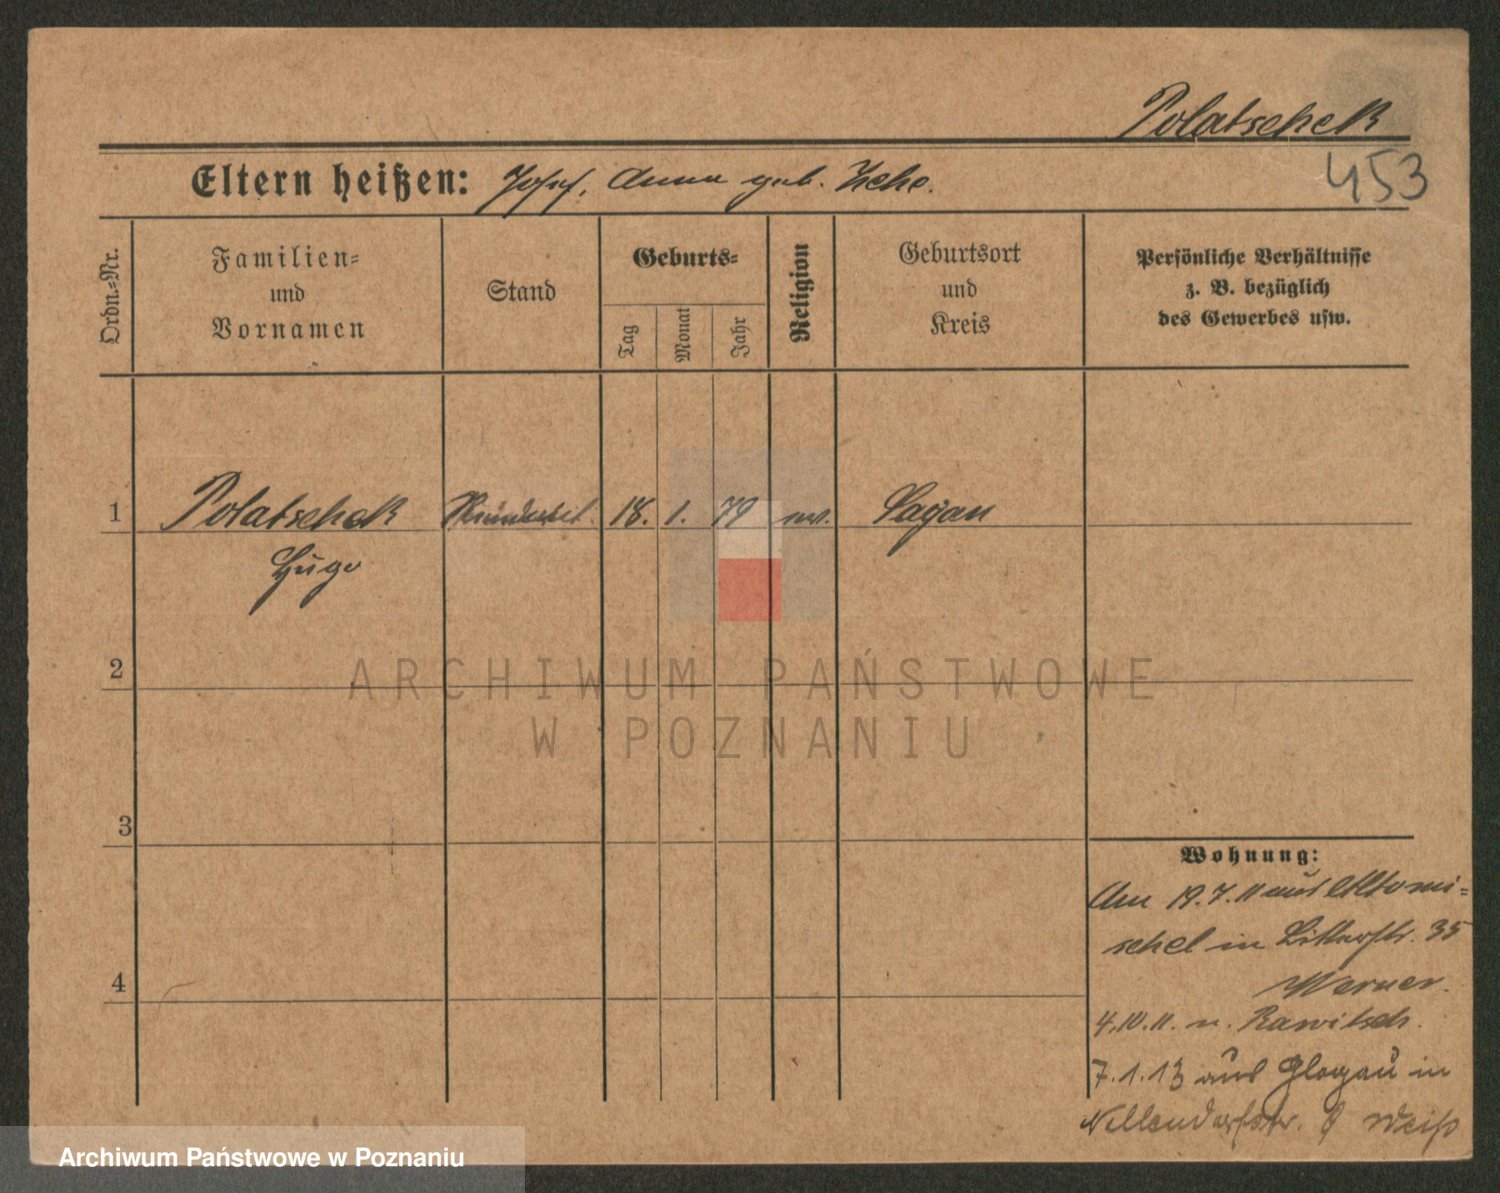 Polatschek
453
Eltern heißen: Josef, Anna geb.
Ordn.-Nr.
Familien-
und
Vornamen
Stand
Geburts-
Tag
Monat
Jahr
Religion
Geburtsort
und
Kreis
Persönliche Verhältnisse
z. B. bezüglich
des Gewerbes usw.
1
Polatschek
18. 1. 79
Sagan
Hugo
2
ARCHIWUM PAŃSTWOWE
W POZNANIU
3
4
Wohnung:
Am 19.7.11 aus Altomi-
schel in Bitterstr. 35
Werner.
4.10.11. n. Rawitsch.
7.1.13 aus Glogau in
Nollendorfstr. 8 Weiß
Archiwum Państwowe w Poznaniu